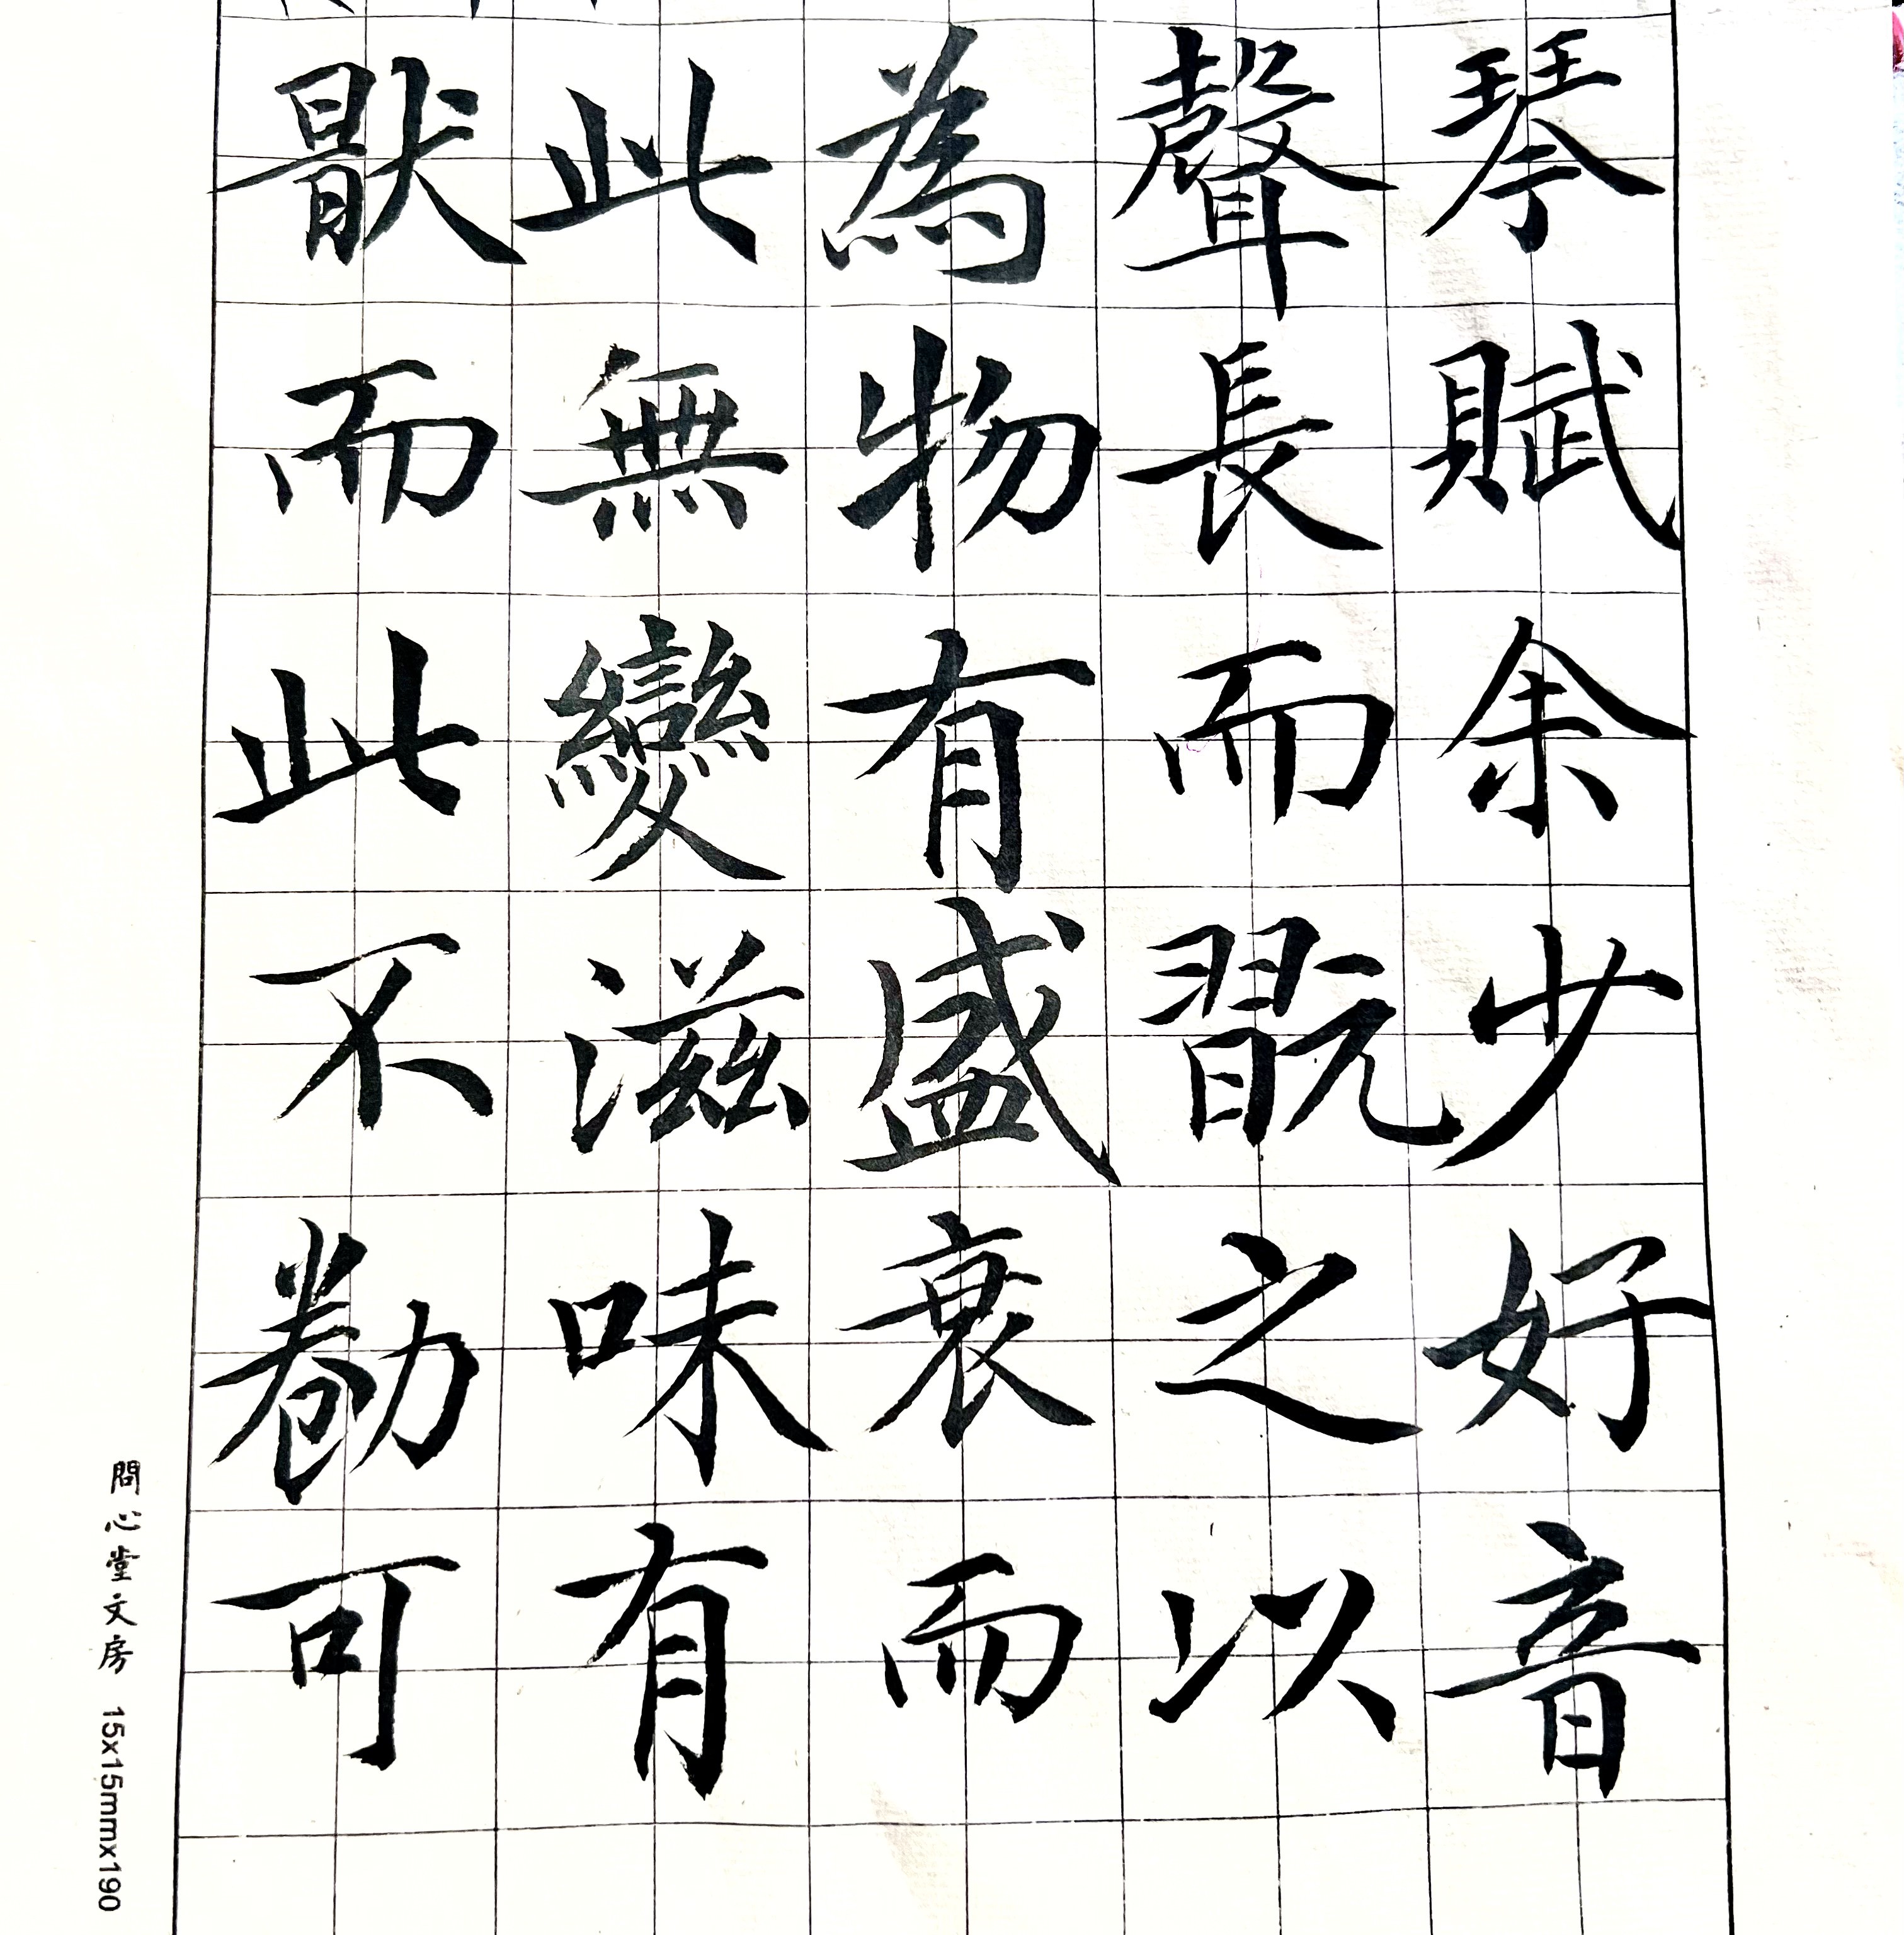 琴賦余少好音
聲長而翫之以
為物有盛衰而
此無變滋味有
猒而此不勌可
問心堂文房 15x15mmx190